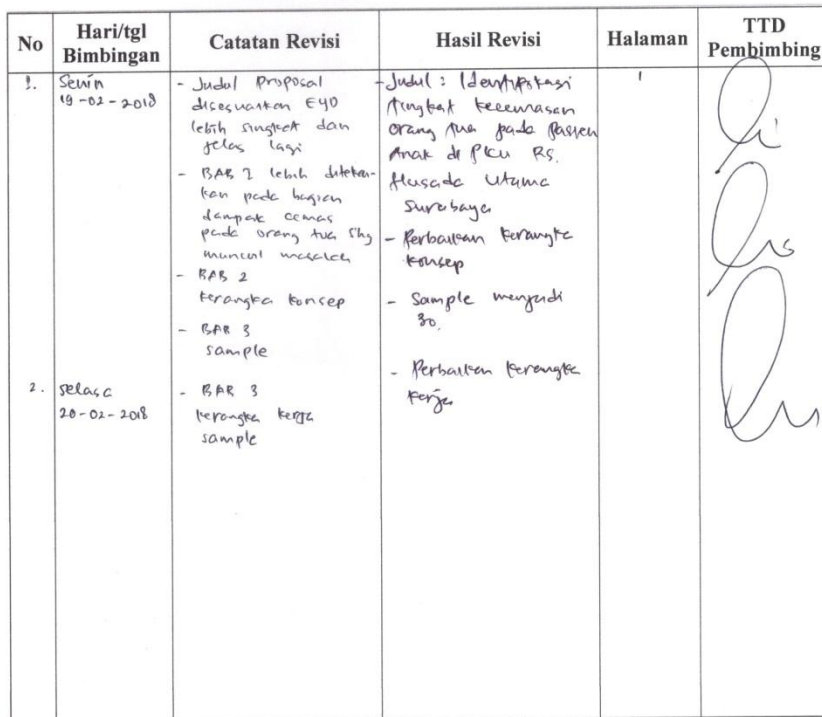 No
Hari/tgl
Bimbingan
Catatan Revisi
Hasil Revisi
Halaman
TTD
Pembimbing
1.
Senin
19-02-2018
- Judul Proposal
disesuaikan EYD
lebih singkat dan
jelas lagi
- BAB 1 lebih ditekan-
kan pada bagian
dampak cemas
pada orang tua shg
muncul masalah
- BAB 2
kerangka konsep
- BAB 3
sample
- Judul : Identifikasi
tingkat kecemasan
orang tua pada pasien
Anak di PICU RS.
Husada Utama
Surabaya
- Perbaikan kerangka
konsep
- Sample menjadi
30.
1
2.
Selasa
20-02-2018
- BAB 3
kerangka kerja
sample
- Perbaikan kerangka
kerja